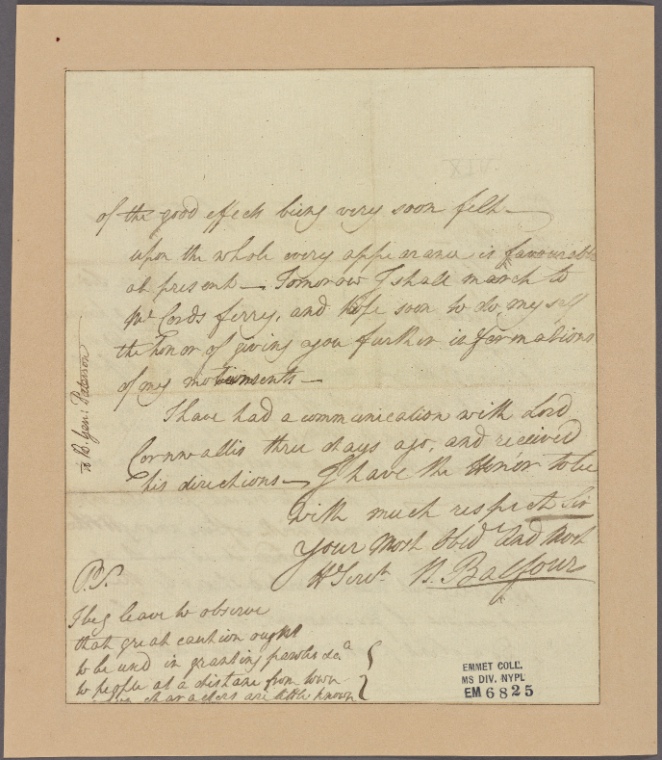 of the good effects being very soon felt —
upon the whole every appearance is favourable
at present — Tomorrow I shall march to
Mc Cords ferry, and hope soon to do, myself
the honor of giving you further informations
of my movements —
I have had a communication with Lord
Cornwallis three days ago, and received
his directions — I have the Honor to be
with much respect Sir
Your Most Obedt And Most
Hl Servt N. Balfour
to B. Genl: Paterson
P.S.
I beg leave to observe
that great caution ought
to be used in granting paroles &ca
to people at a distance from town
characters are little known
EMMET COLL.
MS DIV. NYPL
EM 6825